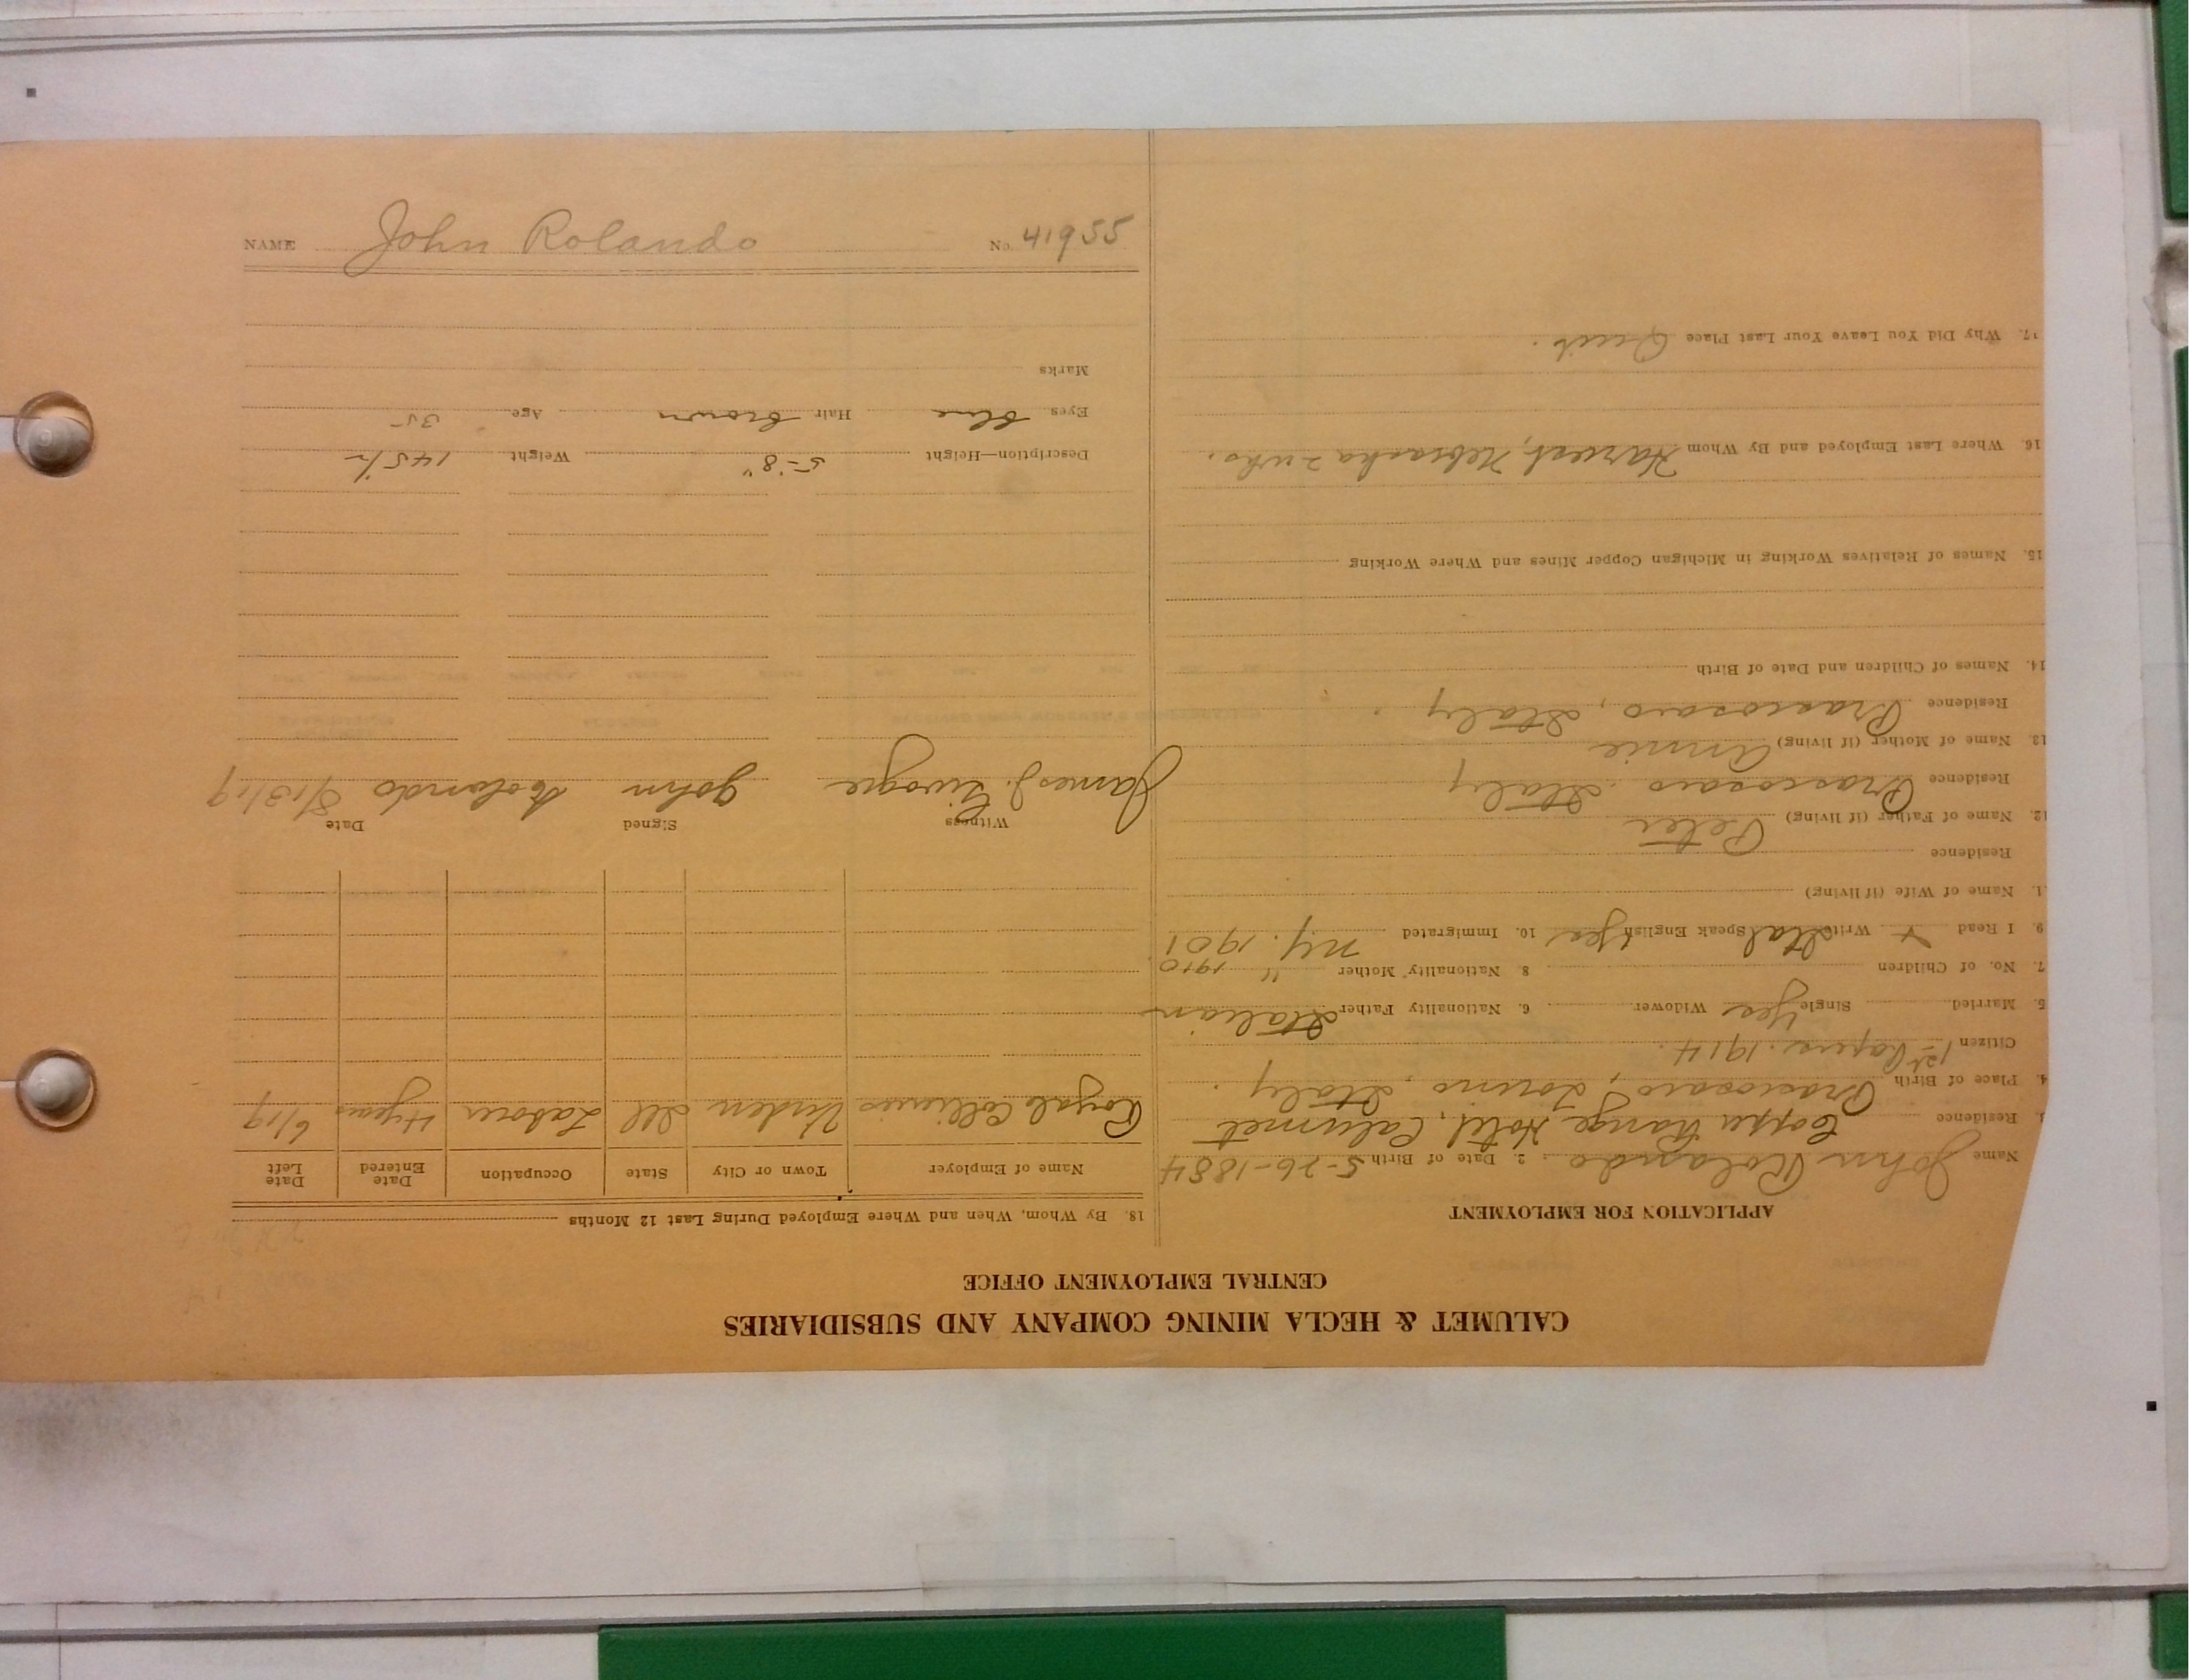 CALUMET & HECLA MINING COMPANY AND SUBSIDIARIES
CENTRAL EMPLOYMENT OFFICE
APPLICATION FOR EMPLOYMENT
Name John Rolando 2. Date of Birth 5-26-1884
Residence Copper Range Hotel, Calumet
4. Place of Birth Prascosaro, Torino, Italy.
Citizen 1st Papers. 1914.
5. Married Single Yes Widower 6. Nationality Father Italian
7. No. of Children 8. Nationality Mother " 1910
9. I Read x Write Ital Speak English Yes 10. Immigrated N.Y. 1901
1. Name of Wife (if living)
Residence
12. Name of Father (if living) Peter
Residence Prascosaro, Italy
13. Name of Mother (if living) Annie
Residence Prascosaro, Italy
14. Names of Children and Date of Birth
15. Names of Relatives Working in Michigan Copper Mines and Where Working
16. Where Last Employed and By Whom Harvest, Nebraska 2 wks.
17. Why Did You Leave Your Last Place Quit.
18. By Whom, When and Where Employed During Last 12 Months
Name of Employer Town or City State Occupation Date Entered Date Left
Royal Collieries Virden Ill Labour 4 years 6/19
Witness Signed Date
James J. John Rolando 8/13/19
Description—Height 5-8" Weight 145 1/2
Eyes blue Hair brown Age 35
Marks
NAME John Rolando No. 41955